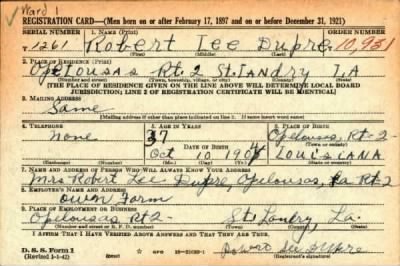 Ward 1
REGISTRATION CARD—(Men born on or after February 17, 1897 and on or before December 31, 1921)
SERIAL NUMBER 1. NAME (Print) ORDER NUMBER
T 1261 Robert Lee Dupre 10,931
(First) (Middle) (Last)
2. PLACE OF RESIDENCE (Print)
Opelousas Rt. 2 St. Landry LA
(Number and street) (Town, township, village, or city) (County) (State)
[THE PLACE OF RESIDENCE GIVEN ON THE LINE ABOVE WILL DETERMINE LOCAL BOARD
JURISDICTION; LINE 2 OF REGISTRATION CERTIFICATE WILL BE IDENTICAL]
3. MAILING ADDRESS
Same
[Mailing address if other than place indicated on line 2. If same insert word same]
4. TELEPHONE 5. AGE IN YEARS 6. PLACE OF BIRTH
None 37 Opelousas, Rt-2-
DATE OF BIRTH (Town or county)
Oct 10 1904 Louisiana
(Exchange) (Number) (Mo.) (Day) (Yr.) (State or country)
7. NAME AND ADDRESS OF PERSON WHO WILL ALWAYS KNOW YOUR ADDRESS
Mrs Robert Lee Dupre, Opelousas, La Rt-2
8. EMPLOYER'S NAME AND ADDRESS
Own Farm
9. PLACE OF EMPLOYMENT OR BUSINESS
Opelousas Rt 2- St. Landry, La.
(Number and street or R. F. D. number) (Town) (County) (State)
I AFFIRM THAT I HAVE VERIFIED ABOVE ANSWERS AND THAT THEY ARE TRUE.
D. S. S. Form 1
(Revised 1-1-42) (over)
Robert Lee Dupre
(Registrant's signature)